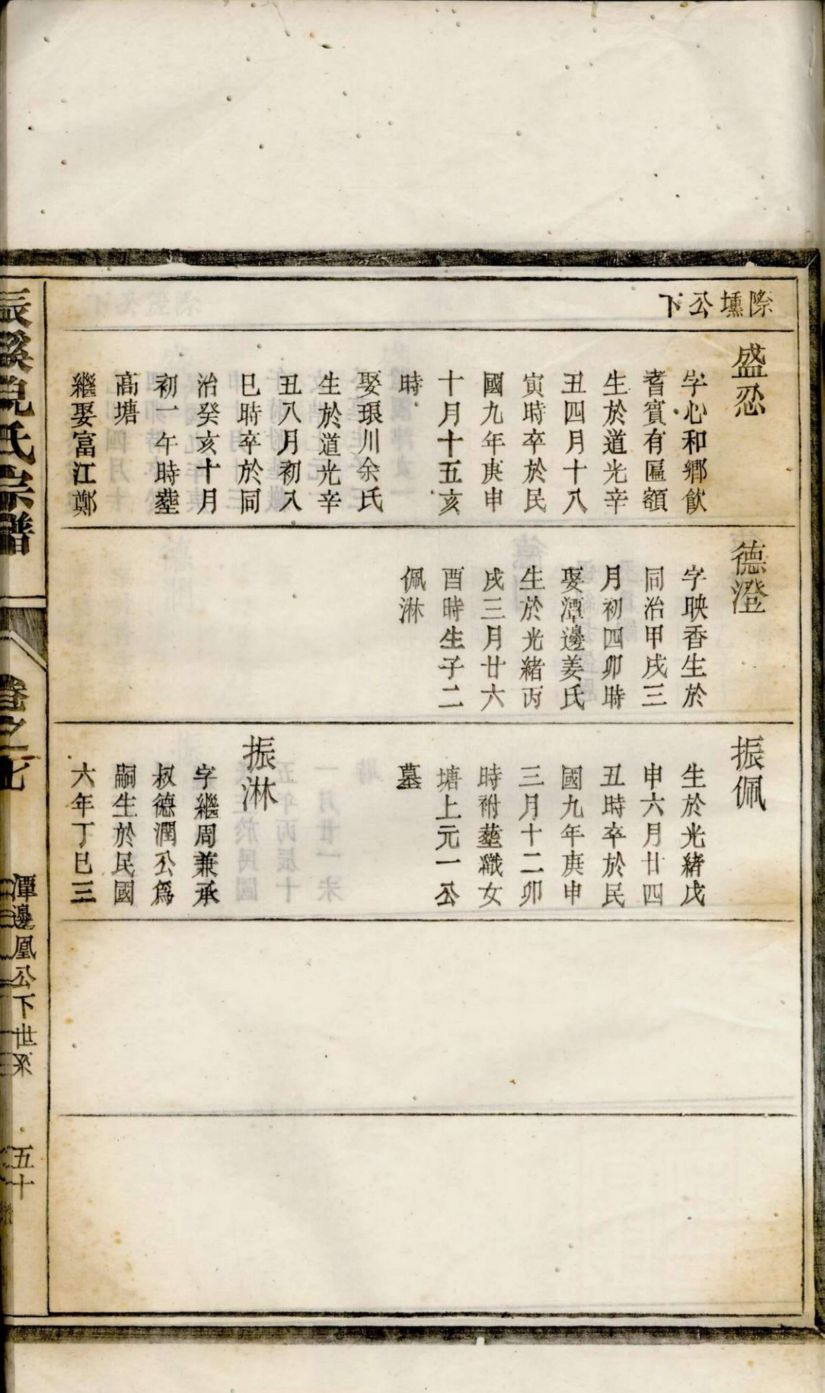 際壎公下
盛忍
字心和鄉飲
耆賓有匾額
生於道光辛
丑四月十八
寅時卒於民
國九年庚申
十月十五亥
時
娶琅川余氏
生於道光辛
丑八月初八
巳時卒於同
治癸亥十月
初一午時塟
高塘
繼娶富江鄭
德澄
字映香生於
同治甲戌三
月初四卯時
娶潭邊姜氏
生於光緒丙
戌三月廿六
酉時生子二
佩淋
振佩
生於光緒戊
申六月廿四
丑時卒於民
國九年庚申
三月十二卯
時祔塟職女
塘上元一公
墓
振淋
字繼周兼承
叔德潤公爲
嗣生於民國
六年丁巳三
氏宗譜
卷之七
潭邊凰公下世系
五十